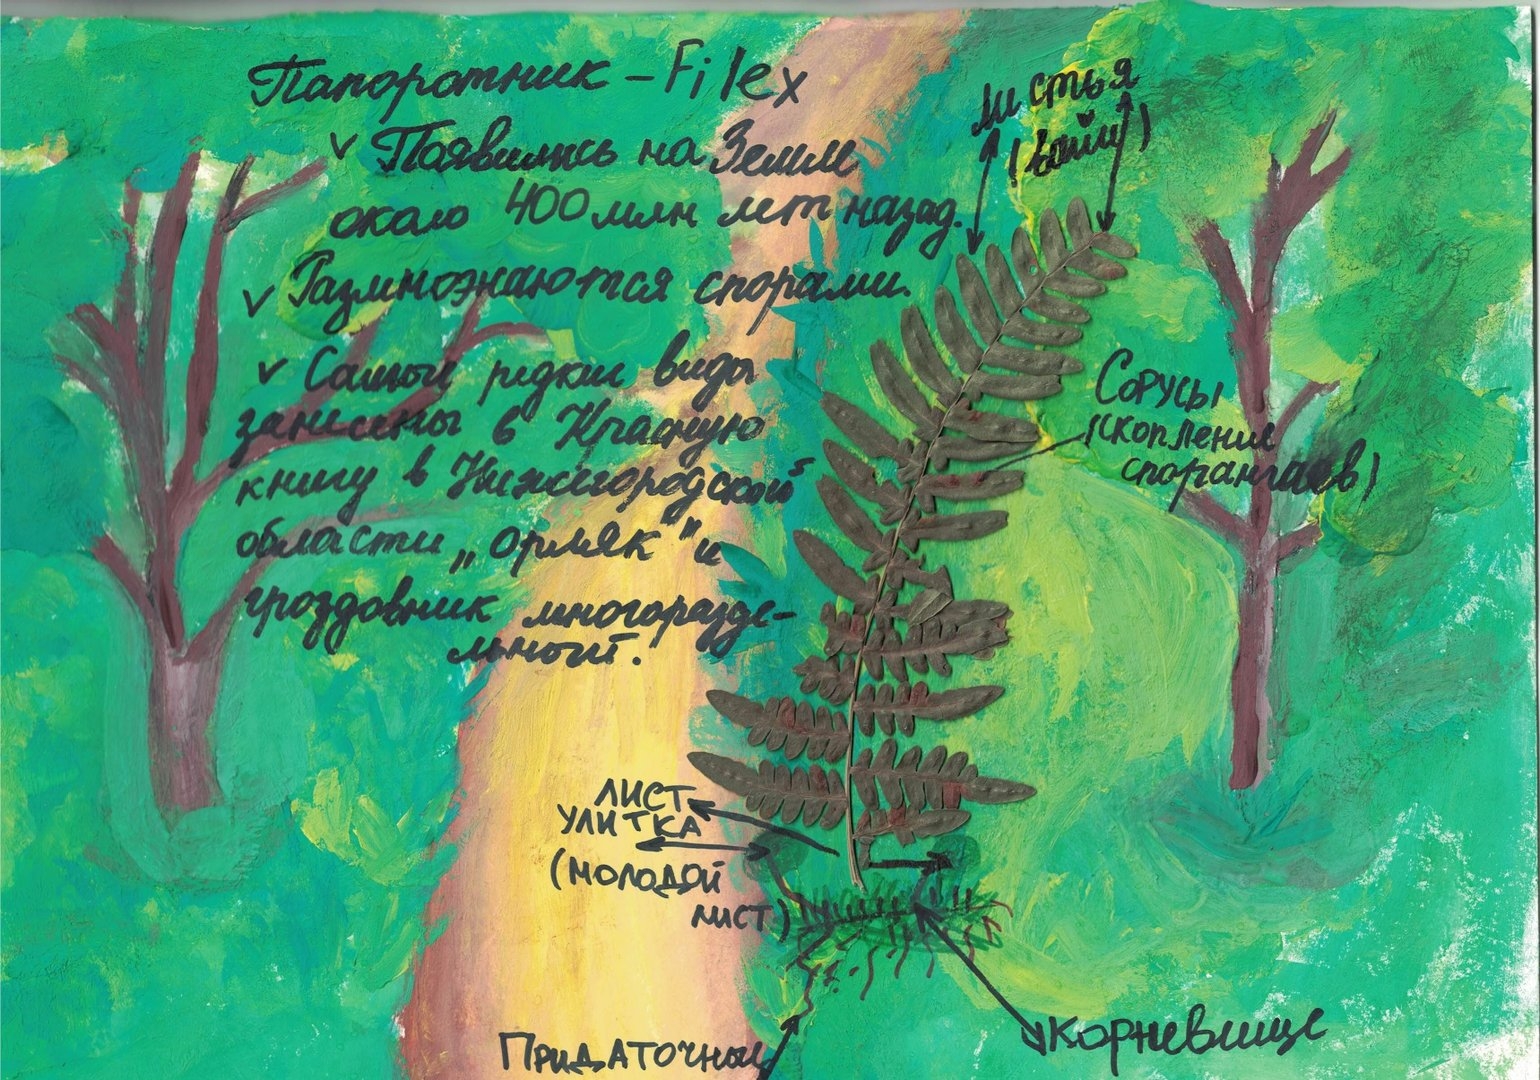 Папоротник – Filex
v Появились на Земле
около 400 млн лет назад.
v Размножаются спорами.
v Самые редкие виды
занесены в Красную
книгу в Нижегородской
области „орляк" и
гроздовник многоразде-
льный.
Листья
(вайи)
Сорусы
(скопление
спорангиев)
ЛИСТ
УЛИТКА
(МОЛОДОЙ
ЛИСТ)
Корневище
Придаточные